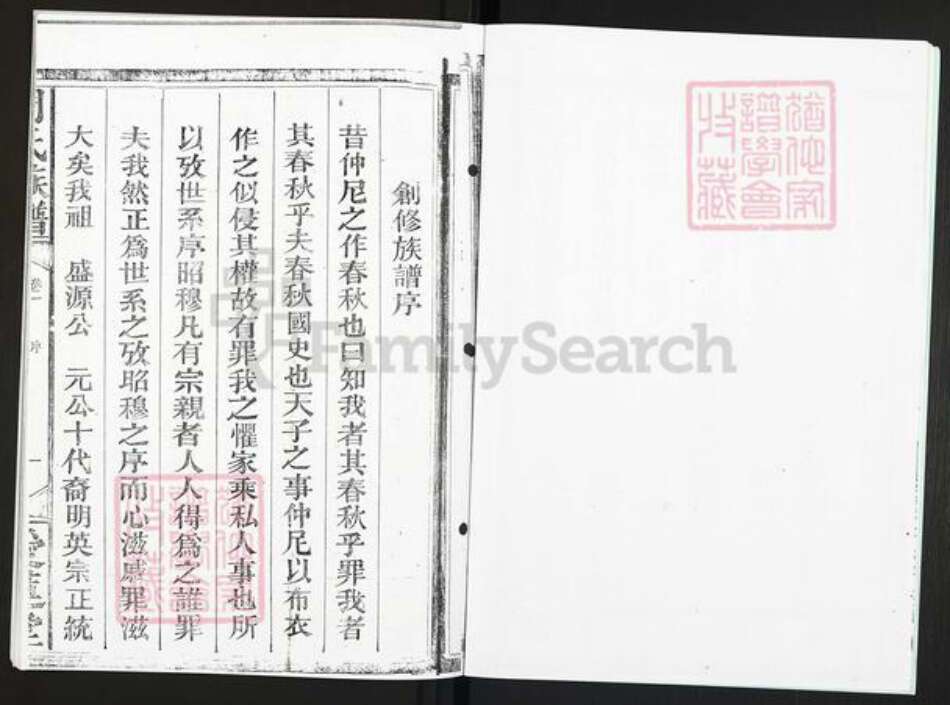 創修族譜序
昔仲尼之作春秋也曰知我者其春秋乎罪我者
其春秋乎夫春秋國史也天子之事仲尼以布衣
作之似侵其權故有罪我之懼家乘私人事也所
以攷世系序昭穆凡有宗親者人人得爲之誰罪
夫我然正爲世系之攷昭穆之序而心滋慼罪滋
大矣我祖 盛源公 元公十代裔明英宗正統
氏族譜
卷一
序
一
譜學會
收藏
FamilySearch